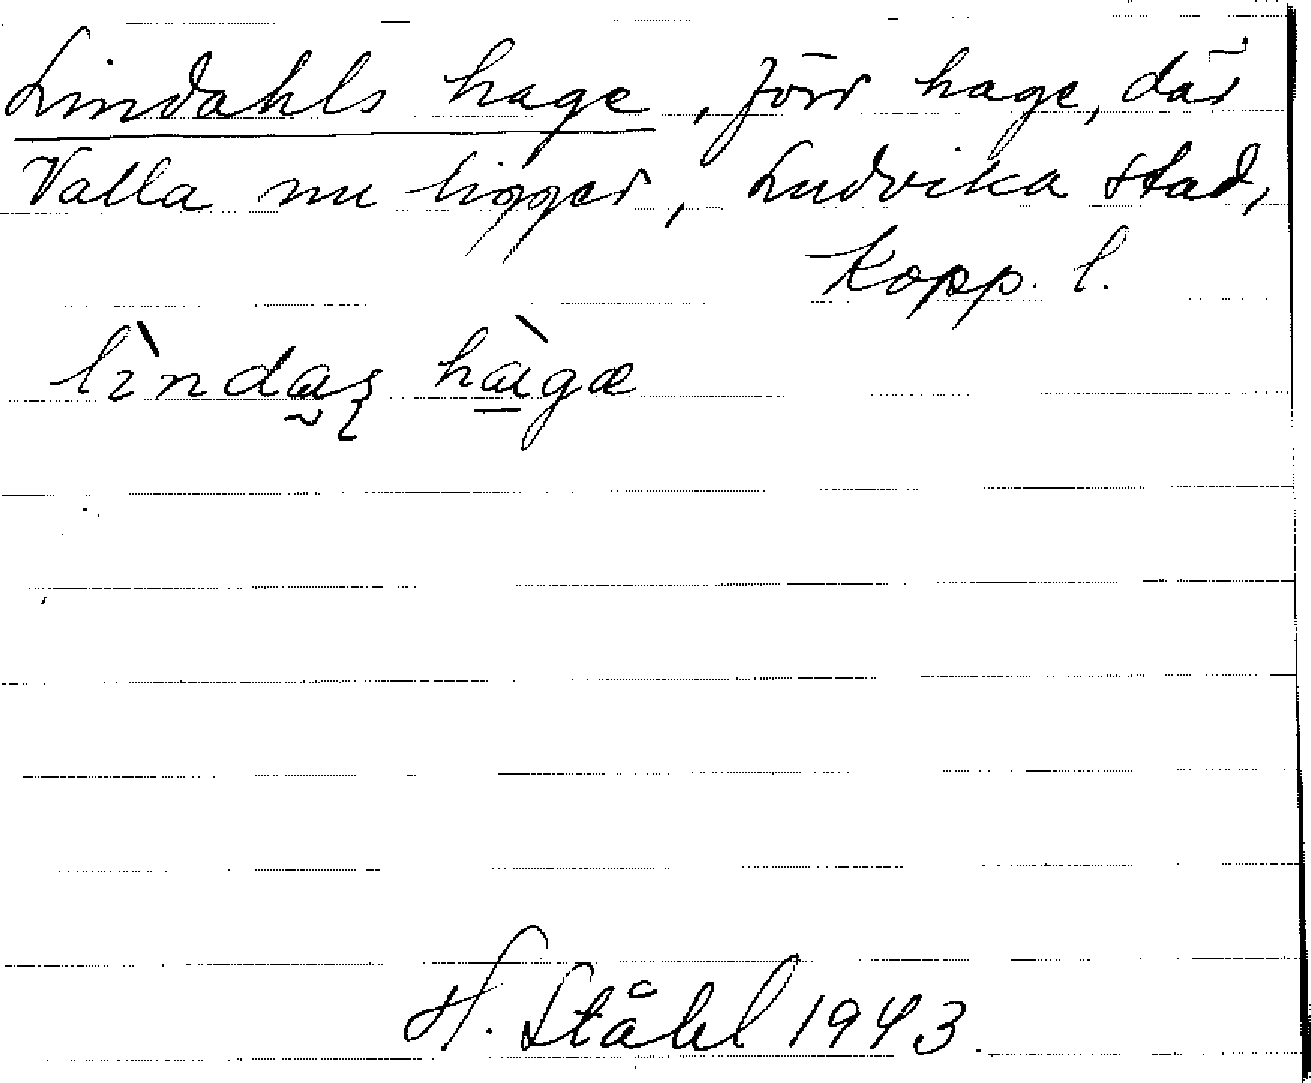 Lindahls hage, förr hage, där
Valla nu ligger, Ludvika stad,
Kopp. l.
lìndaʂ hàgæ
H. Ståhl 1943.